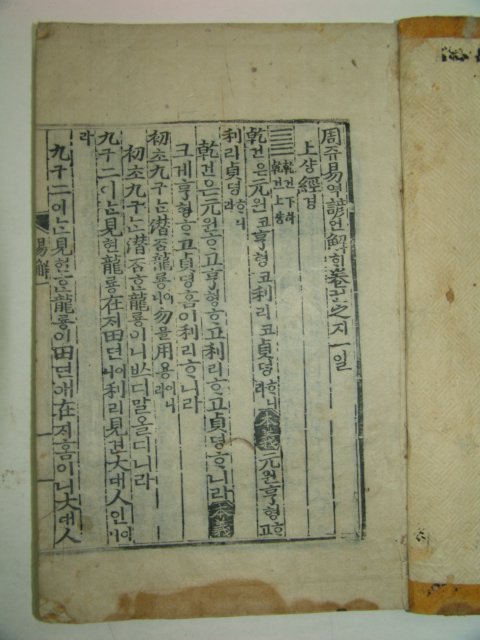 周쥬易역諺언解ᄒᆡ卷권之지一일
上샹經경
䷀ 乾건下하 乾건上샹
乾건은元원코亨형코利리코貞뎡ᄒᆞ니라 本義 元원亨형ᄒᆞ고
利리貞뎡ᄒᆞ니라
乾건은元원ᄒᆞ고亨형ᄒᆞ고利리ᄒᆞ고貞뎡ᄒᆞ니라 本義
크게亨형ᄒᆞ고貞뎡홈이利리ᄒᆞ니라
初초九구ᄂᆞᆫ潛ᄌᆞᆷ龍룡이니勿믈用용이니라
初초九구ᄂᆞᆫ潛ᄌᆞᆷᄒᆞᆫ龍룡이니ᄡᅳ디말올디니라
九구二이ᄂᆞᆫ見현龍룡在ᄌᆡ田뎐이니利리見견大대人인이니
라
九구二이ᄂᆞᆫ見현ᄒᆞᆫ龍룡이田뎐애在ᄌᆡ홈이니大대人
易解 一